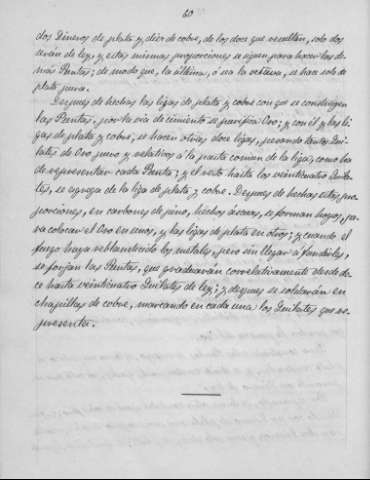 60
dos Dineros de plata y diez de cobre, de los doce que resultan, solo dos
serán de ley, y estas mismas proporciones se siguen para hacer las de-
más Puntas; de modo que, la última, ó sea la octava, se hace solo de
plata pura.
Despues de hechas las ligas de plata y cobre con que se construyen
las Puntas, por la via de cimiento se purifica Oro; y con él y las li-
gas de plata y cobre, se hacen otras doce ligas, pesando tantos Qui-
lates de Oro puro y relativos á la parte comun de la liga, como ha
de representar cada Punta; y el resto hasta los veinticuatro Quila-
tes, se agrega de la liga de plata y cobre. Despues de hechas estas pro-
porciones, en carbones de pino, hechos se forman hoyos, pa-
ra colocar el Oro en unos, y las ligas de plata en otros; y cuando el
fuego haya reblandecido los metales, pero sin llegar á fundirlos,
se forjan las Puntas, que graduarán correlativamente desde do-
ce hasta veinticuatro Quilates de ley; y despues se soldarán en
chapillas de cobre, marcando en cada una los Quilates que re-
presenta.